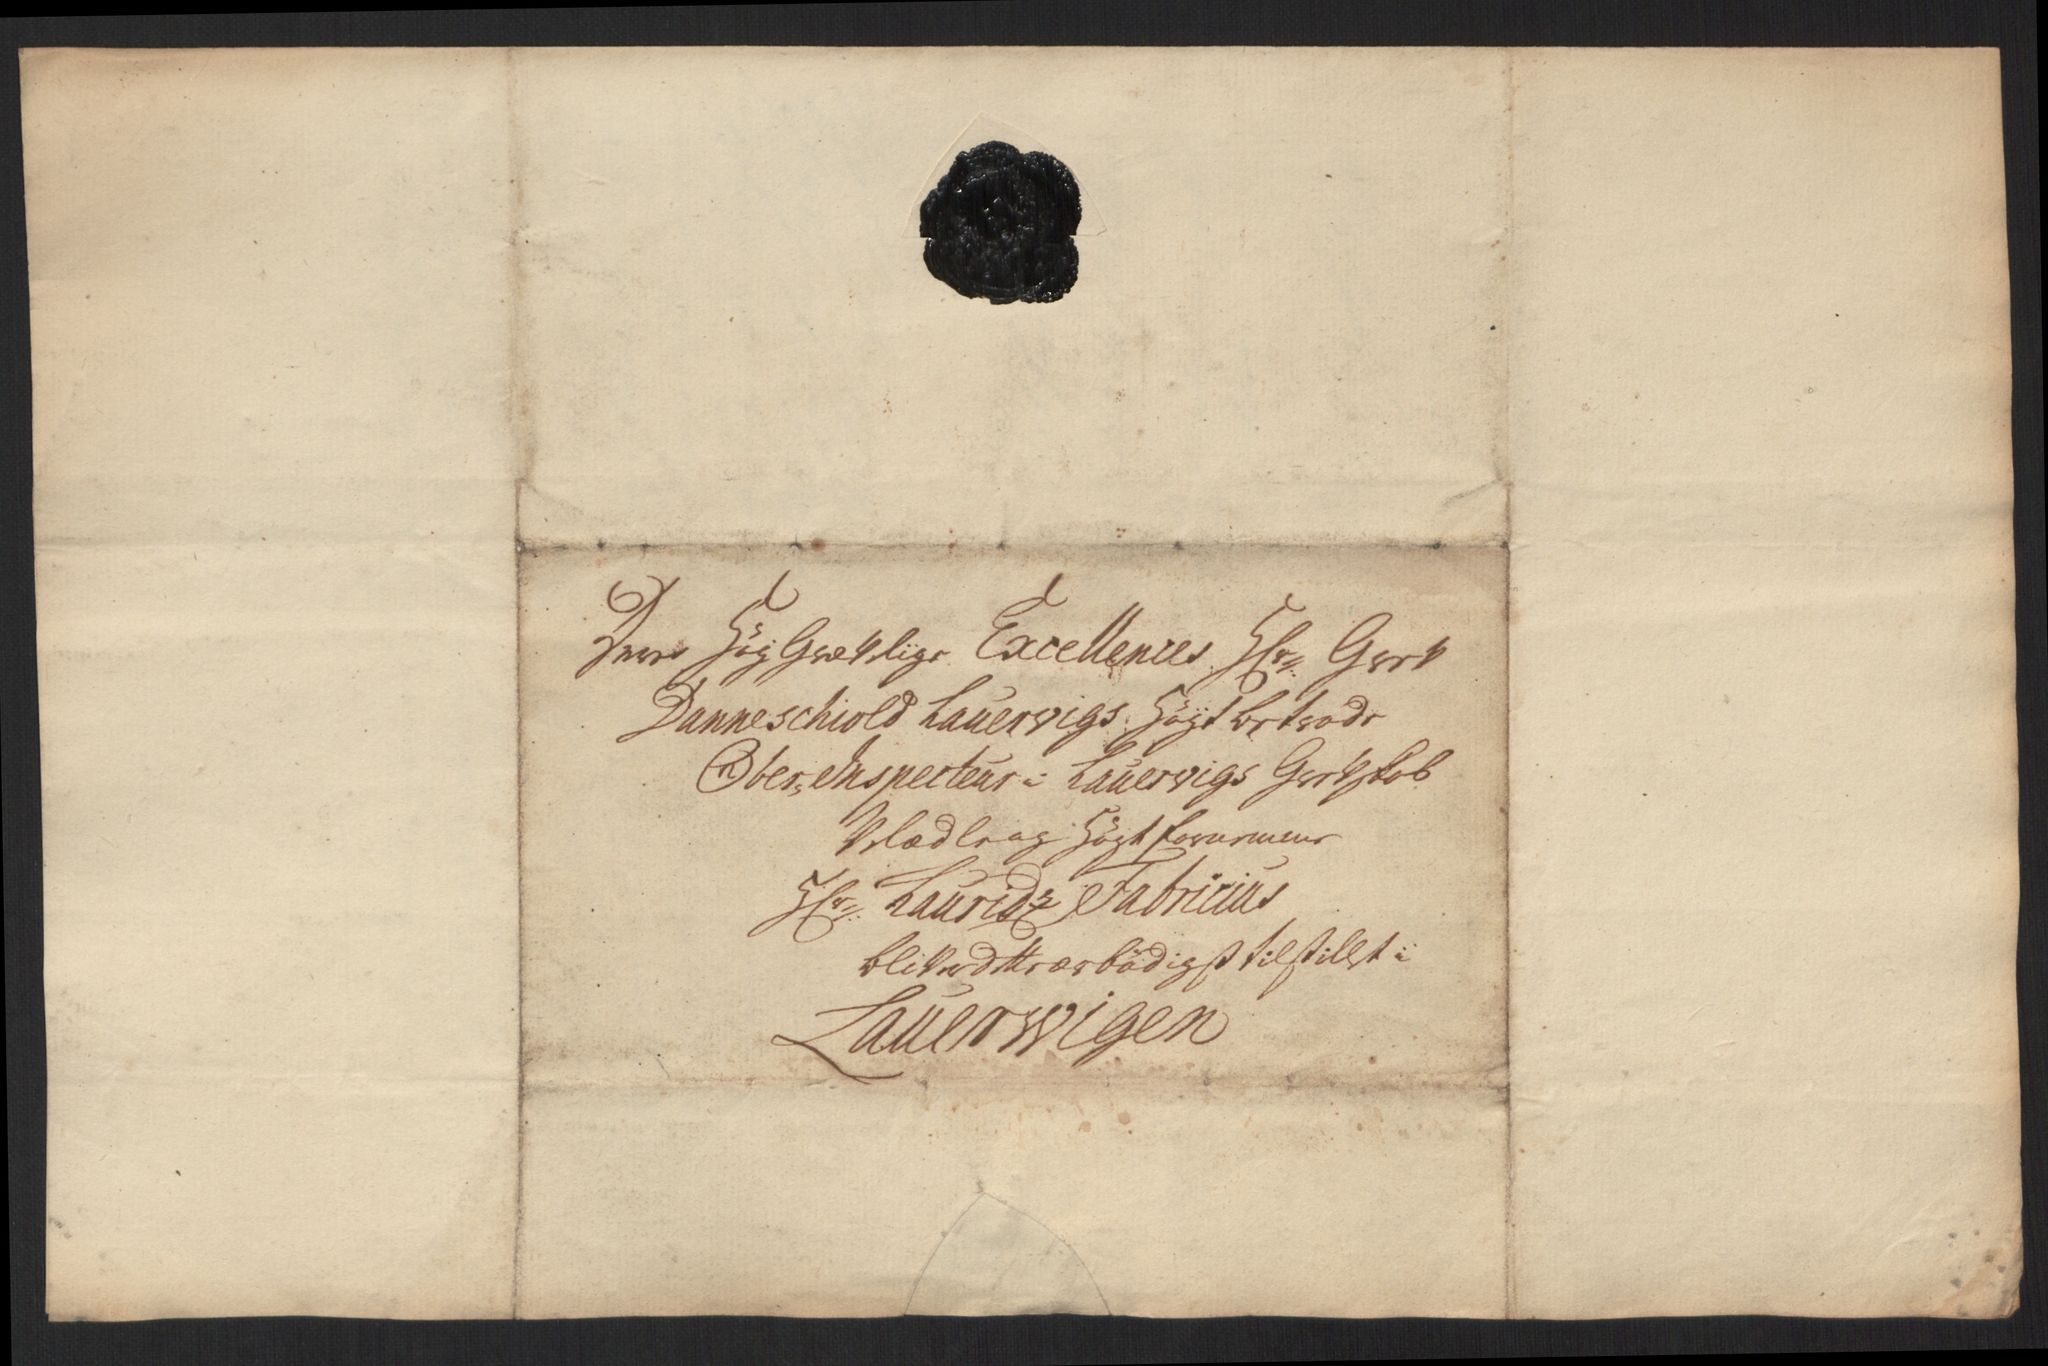 Deres Høy Grevelige Excellences Hr: Grev
Danneschiold Lauervigs Høyt betroede
Ober=Inspecteur i Lauervigs Grevskab
Vel ædle og Høyt fornemme
Hr: Lauridz Fabricius
blive dette ærbødigst tilstillet i
Lauerwigen